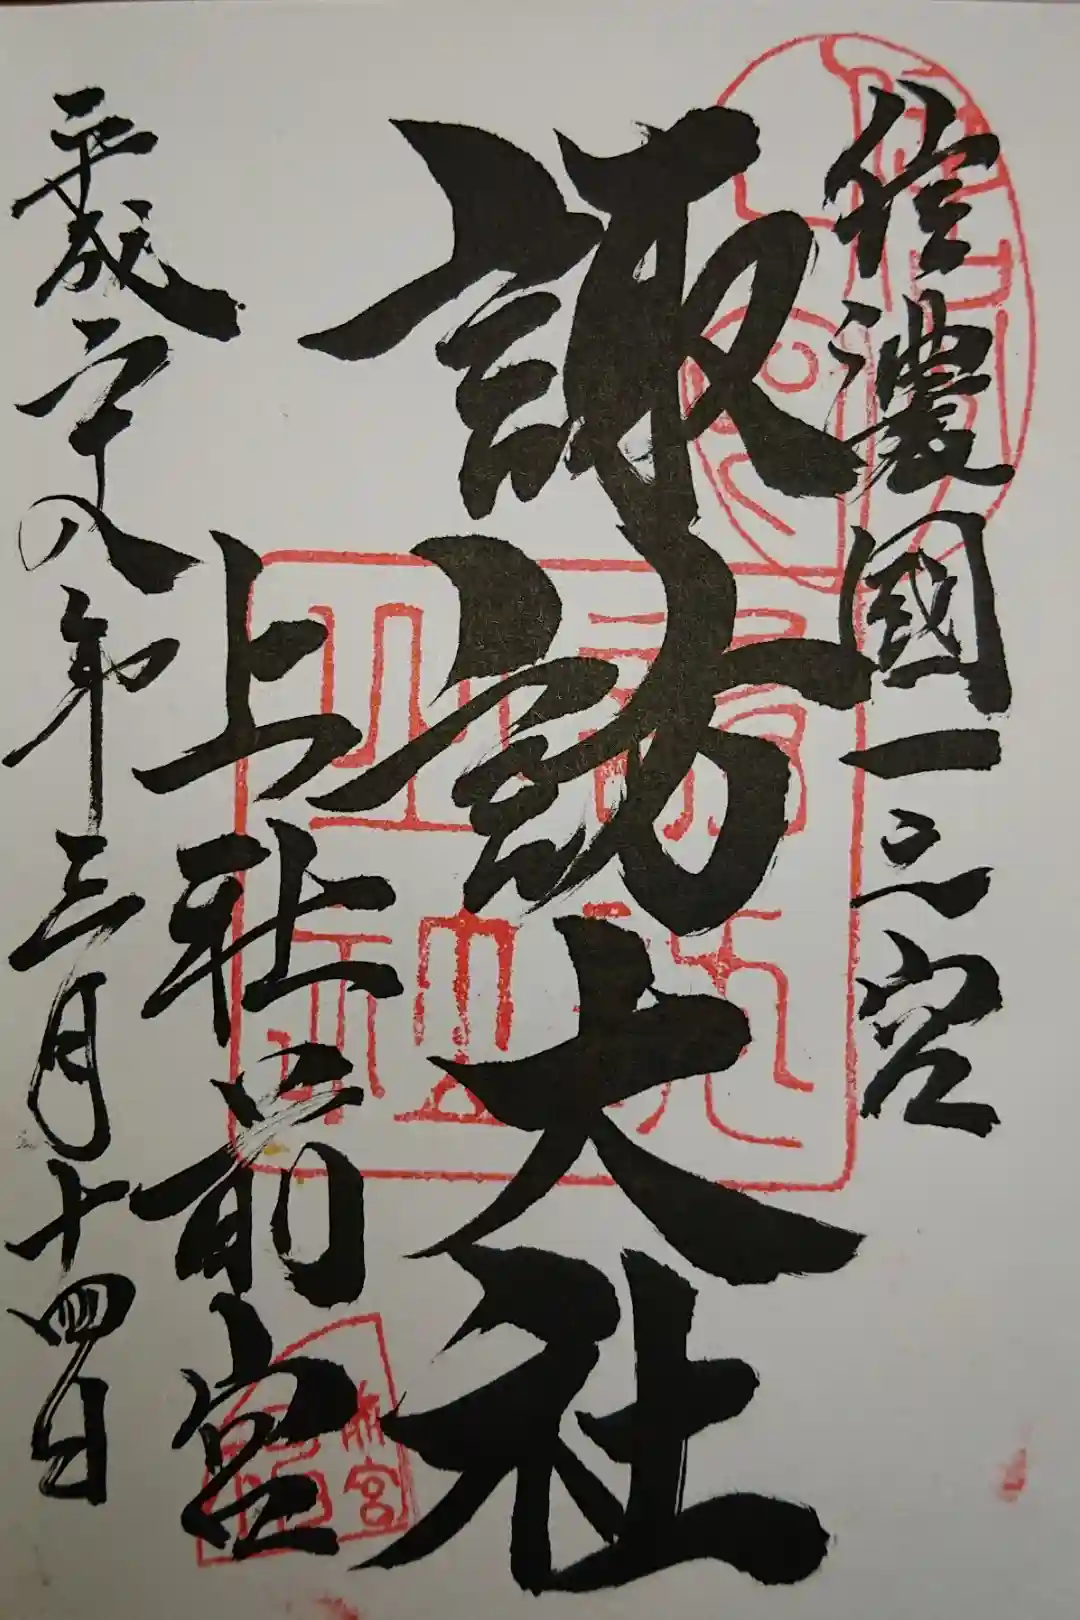 信濃國一之宮
諏訪大社
上社前宮
平成二十八年三月十四日
前宮